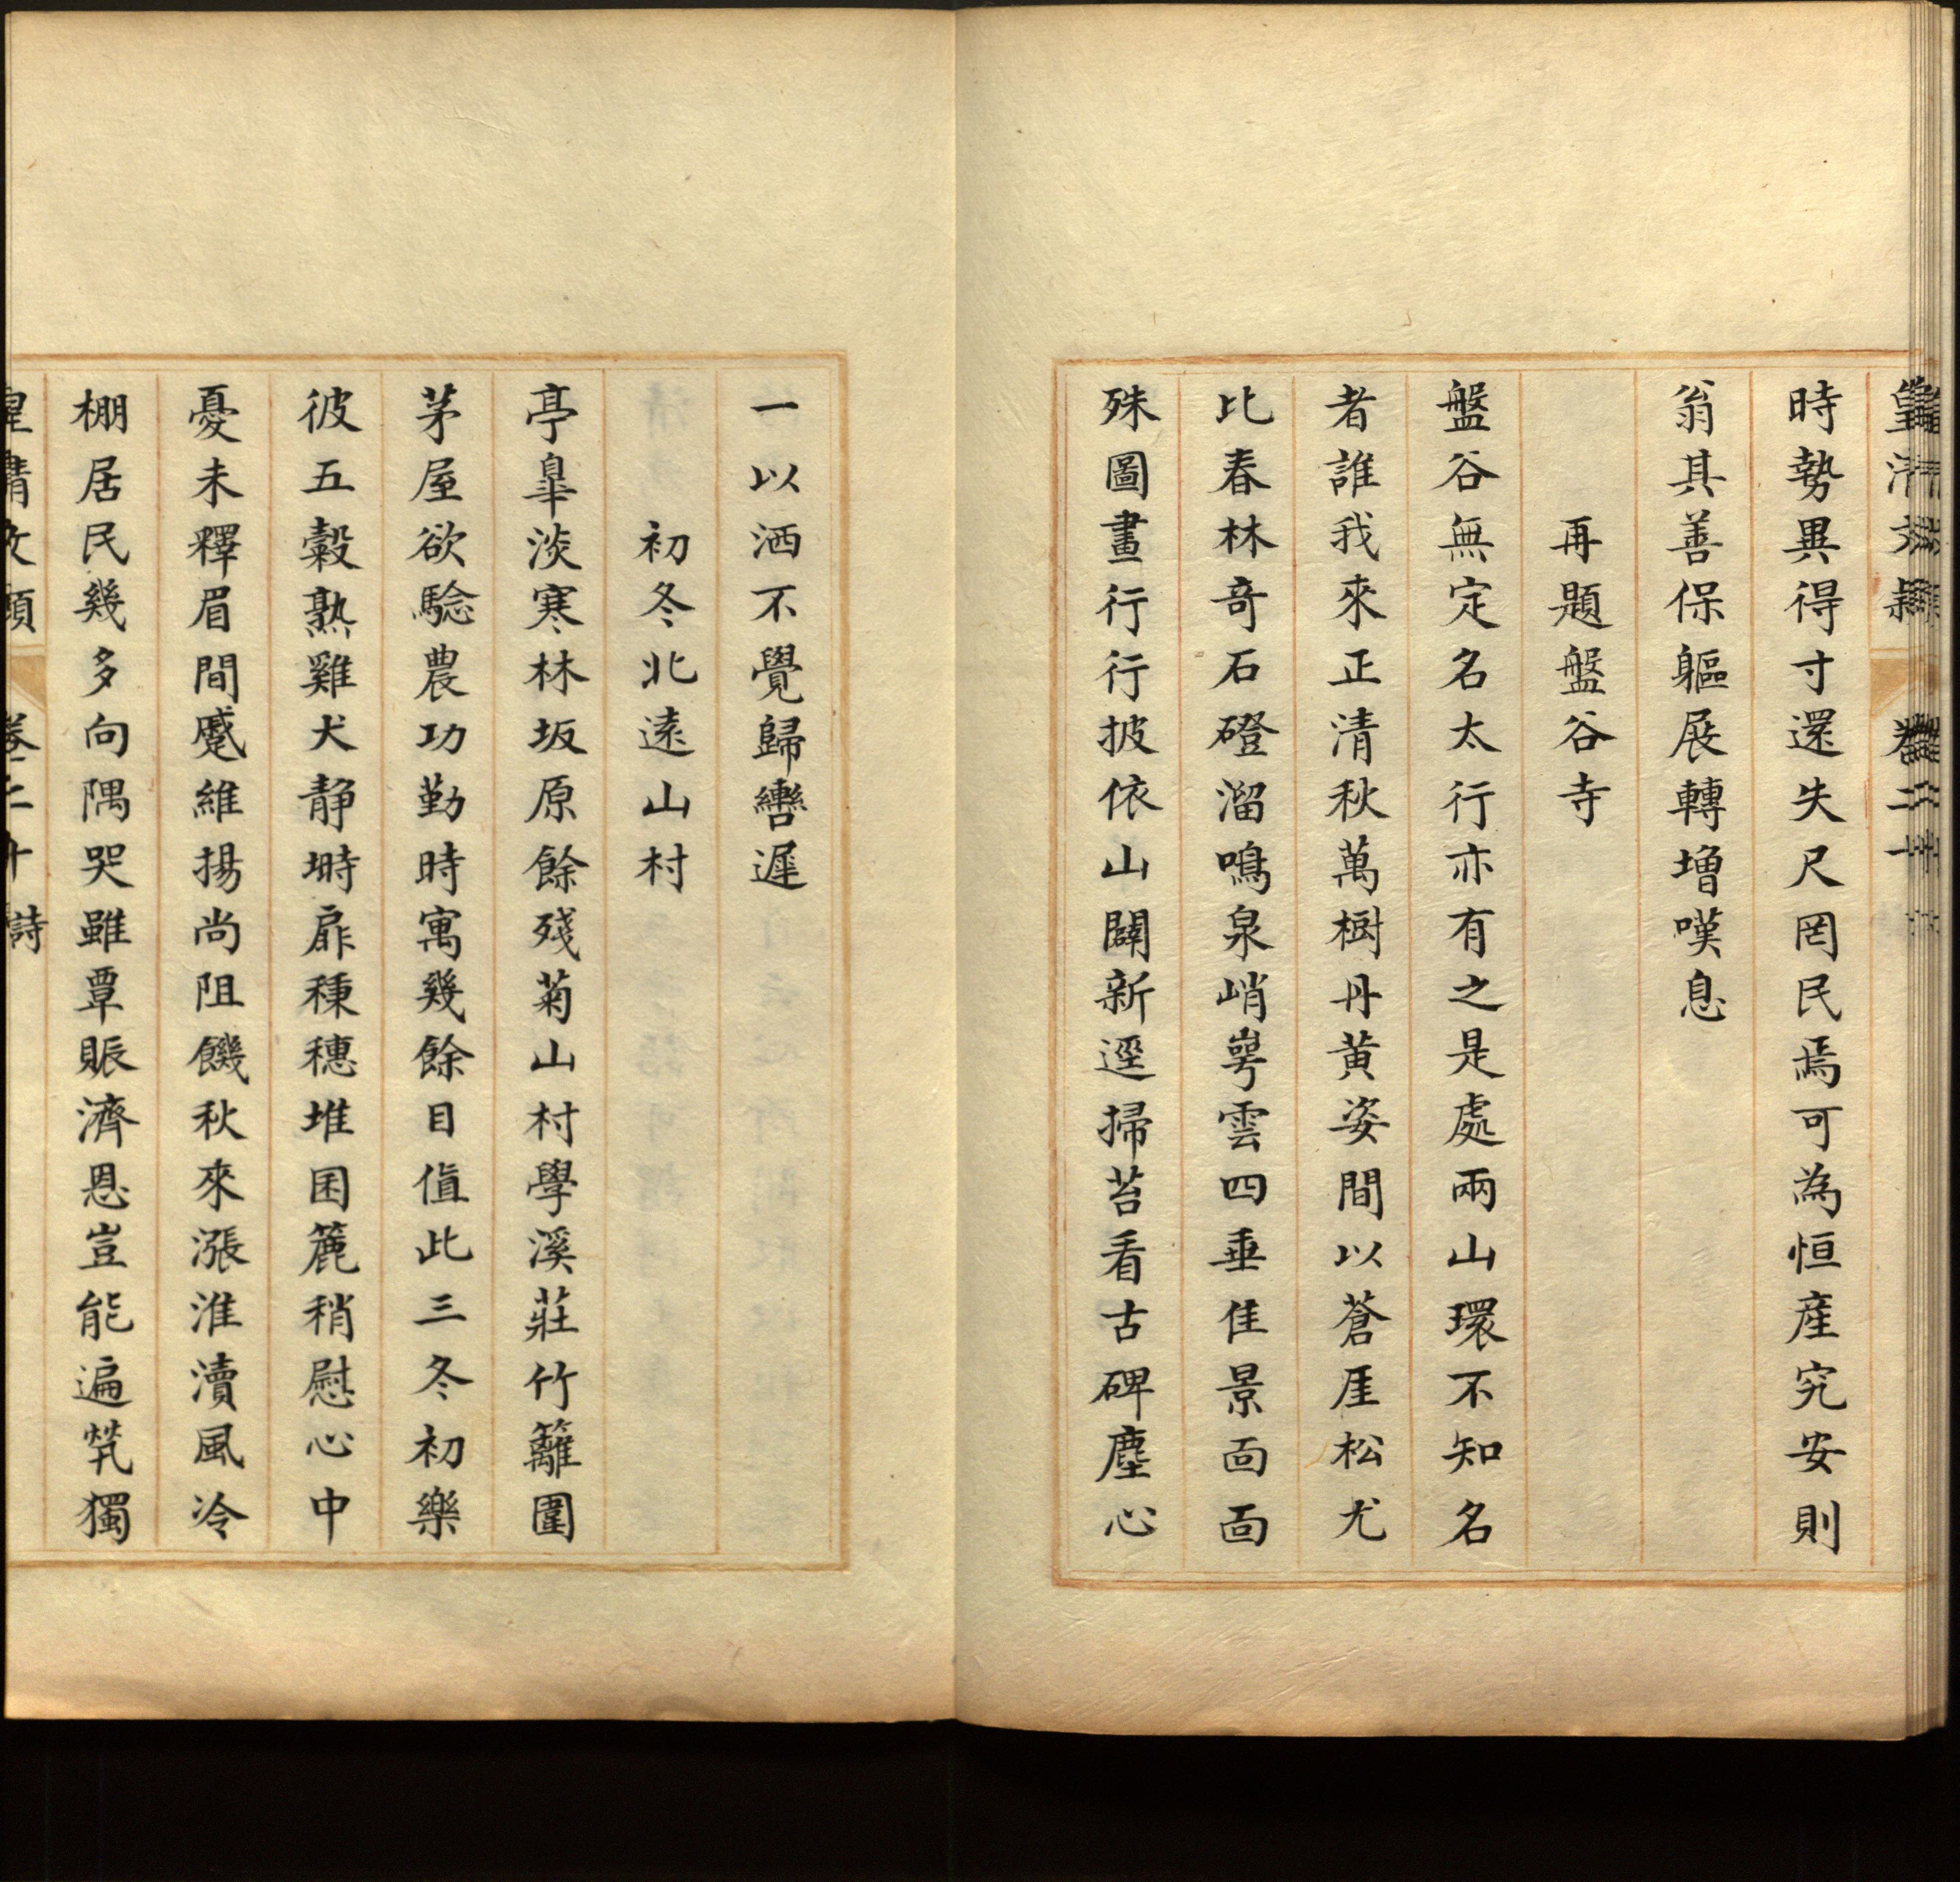 時勢異得寸還失尺罔民焉可為恒產究安則
翁其善保軀展轉增嘆息
再題盤谷寺
盤谷無定名太行亦有之是處兩山環不知名
者誰我來正清秋萬樹丹黃姿間以蒼厓松尤
比春林奇石磴溜鳴泉峭崿雲四垂佳景面面
殊圖畫行行披依山闢新逕掃苔看古碑塵心
一以洒不覺歸轡遲
初冬北遠山村
亭臯淡寒林坂原餘殘菊山村學溪莊竹籬圍
茅屋欲騐農功勤時寓幾餘目值此三冬初樂
彼五穀熟雞犬静塒扉稑穗堆囷簏稍慰心中
憂未釋眉間蹙維揚尚阻饑秋來漲淮瀆風冷
棚居民幾多向隅哭雖覃賑濟恩豈能遍煢獨
皇清文穎 卷二十 詩